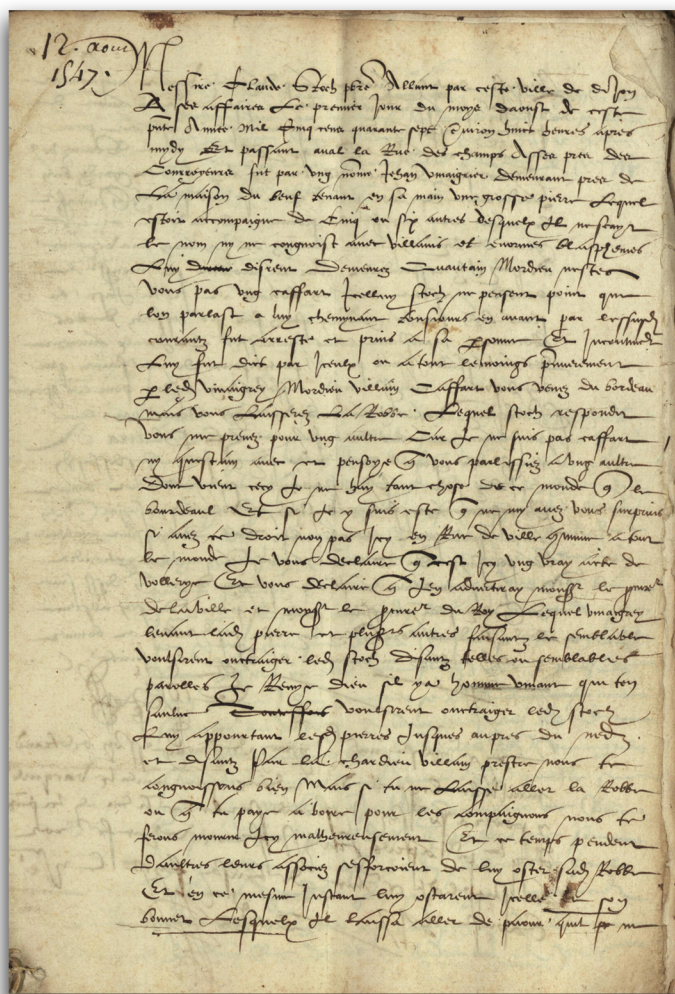 12. Aout
1547.
Messire Claude Stoch pbre Allant par ceste ville de dijon
A ses affaires Le premier Jour du moys daoust de ceste
pnte Annee Mil Cinq cens quarante sept Environ huict heures apres
mydy Et passant aval la Rue des champs Assez pres des
Conroyeurs fut par ung nomme Jehan vinaigrier demeurant pres de
La maison du beuf tenant en sa main une grosse pierre Lequel
estoit accompaigne de Cinq ou six autres desquelz Il ne scayt
le nom ny ne congnoist avec villains et enormes blasphemes
Luy disrent Demeurez Mordieu nestes
vous pas ung caffart Icelluy stoch ne pensent point que
lon parlast a luy cheminant tousiours en avant par lesquelz
courantz fut arreste et prins a sa personne Et Incontinent
Luy fut dict par Iceulx ou a tout le moings
p led vinaigrey Mordieu villain Caffart vous venez du bordeau
mais vous Laisserez La Robbe Lequel stoch respondit
vous me prenez pour ung aultre Car Je ne suis pas caffart
ny et pensoye q vous parlissiez a ung aultre
Dont vient cecy Je ne hay tant chose de ce monde q le
bourdeaul Et si Je y suis este q ne my avez vous surprins
si avez ce droit non pas Icy en Rue de ville commune a tout
le monde Je vous declaire q cest Icy ung vray acte de
vollerye Et vous declaire q Jen advertiray monsr le procur
de la ville et monsr le procur du Roy Lequel vinaigrey
levant lad pierre et plusrs autres faisantz le semblable
voulsirent oultraiger led stoch disantz telles ou semblables
parolles Je Renye dieu sil y a homme vivant qui ten
saulve voulsirent oultraiger led stoch
Luy appourtant lesd pierres Jusques aupres du nedz
et disantz Par la chardieu villain prestre nous te
congnoissons bien Mais si tu ne Laisse aller la Robbe
ou q tu paye a boire pour les compaignons nous te
ferons mourir Icy malheureusement Et ce temps pendent
Daultres leurs associez sesforcoient de luy oster sad Robbe
Et en ce mesme Instant luy ostarent Icelle et son
bonnet Lesquelx Il laissa aller de paour quil ne